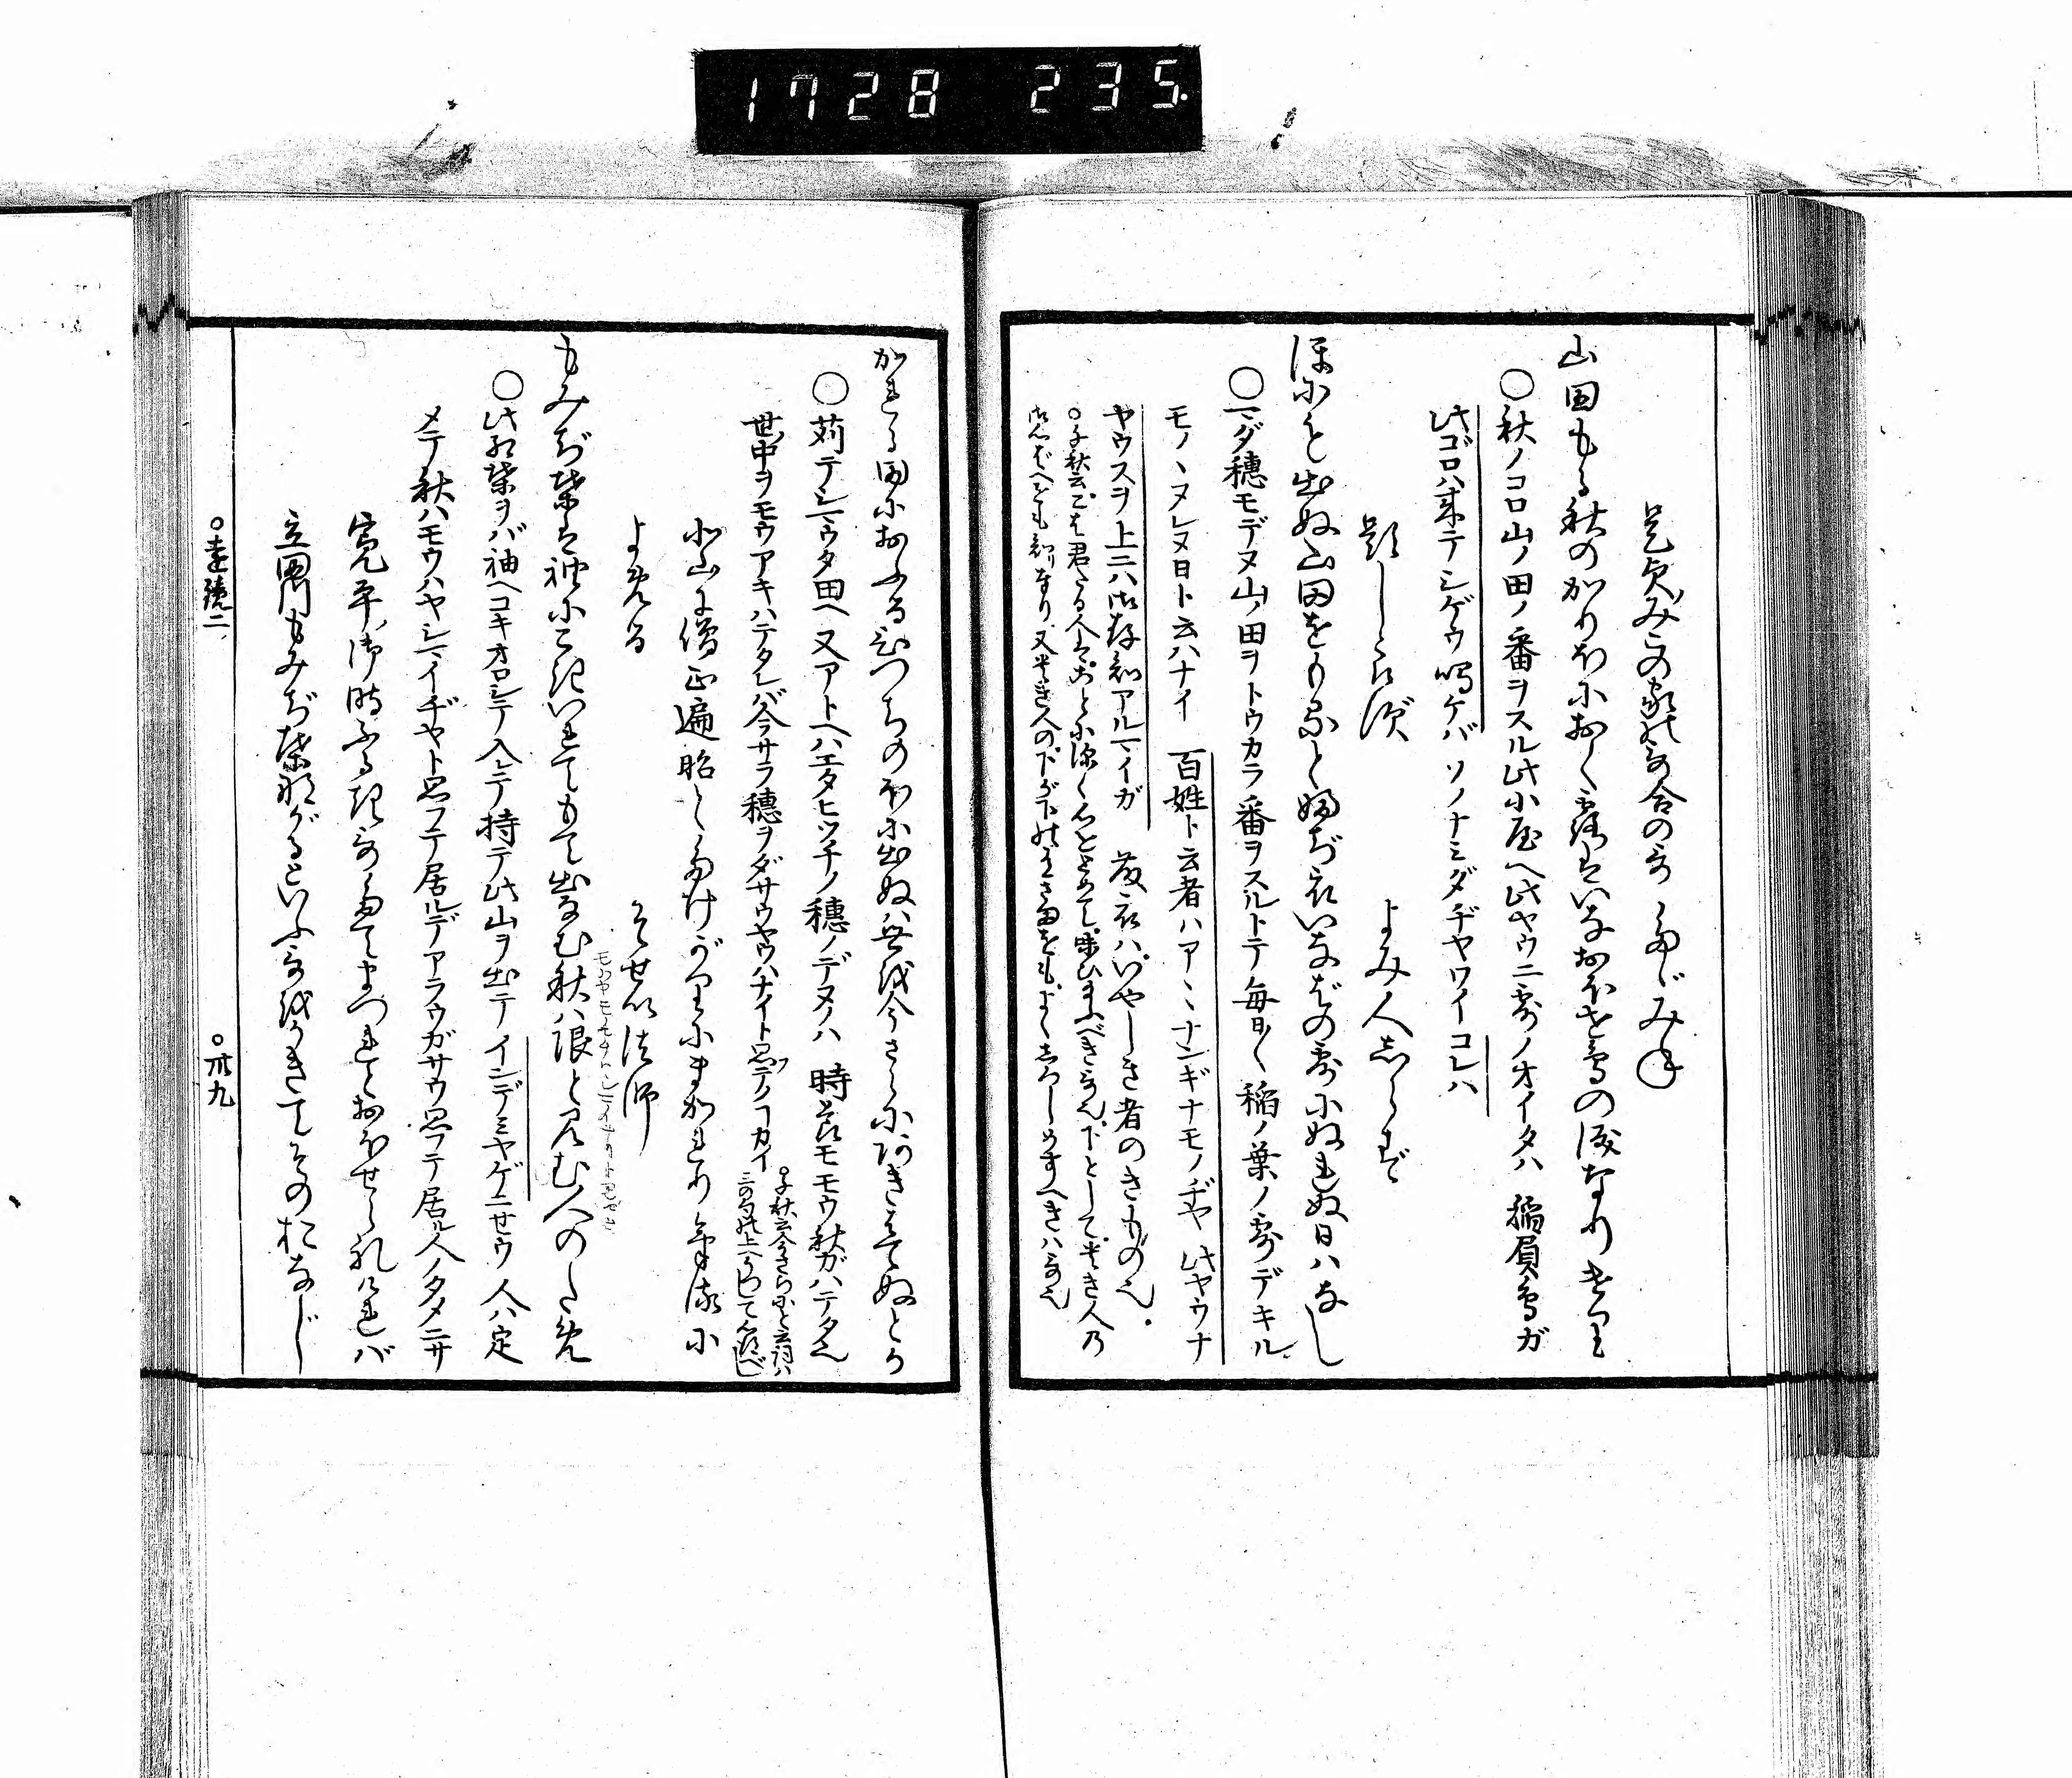 1728 235.
是貞のみこの家の哥合のうた　たゞみね
山田もる秋のかりほにおく露はいなおほせ鳥の涙なりけり
○秋ノコロ山ノ田ノ番ヲスル此小屋ヘ此ヤウニ露ノオイタハ 稲負鳥ガ
此ゴロハ来テシゲウ鳴ケバ ソノナミダヂヤワイコレハ
題しらず　よみ人しらず
ほにも出ぬ山田をもると藤ぢ衣いなばの露にぬれぬ日はなし
○マダ穂モデヌ山ノ田ヲトウカラ番ヲスルトテ毎日〱稲ノ葉ノ露デキル
モノヽヌレヌ日ト云ハナイ 百姓ト云者ハアヽナンギナモノヂヤ 此ヤウナ
ヤウスヲ上ニハ御存知アルマイガ 藤衣ハいやしき者のきもの也
かれる田におふるひつちのほに出ぬは世を今さらにあきはてぬとか
○苅テシマウタ田ヘ 又アトヘハエタヒツチノ穂ノデヌノハ 時節モモウ秋ガハテタ也
世中ヲモウアキハテタレバ今サラ穂ヲダサウヤウハナイト思フテノコカイ
北山に僧正遍昭とたけがりにまかれりけるに
よめる　そせい法師
もみぢ葉は袖にこきいれてもて出なむ秋は限と見む人のため
○此紅葉ヲバ袖ヘコキオロシテ入レテ持テ此山ヲ出テ インデミヤゲニセウ 人ハ定
メテ秋ハモウハヤシマイヂヤト思フテ居ルデアラウガサウ思フテ居ル人ノタメニサ
寛平御時ふるき哥たてまつれとおほせられければ
立田川もみぢ葉ながるといふ哥をかきてそのおなじ
○遠鏡二　○卅九